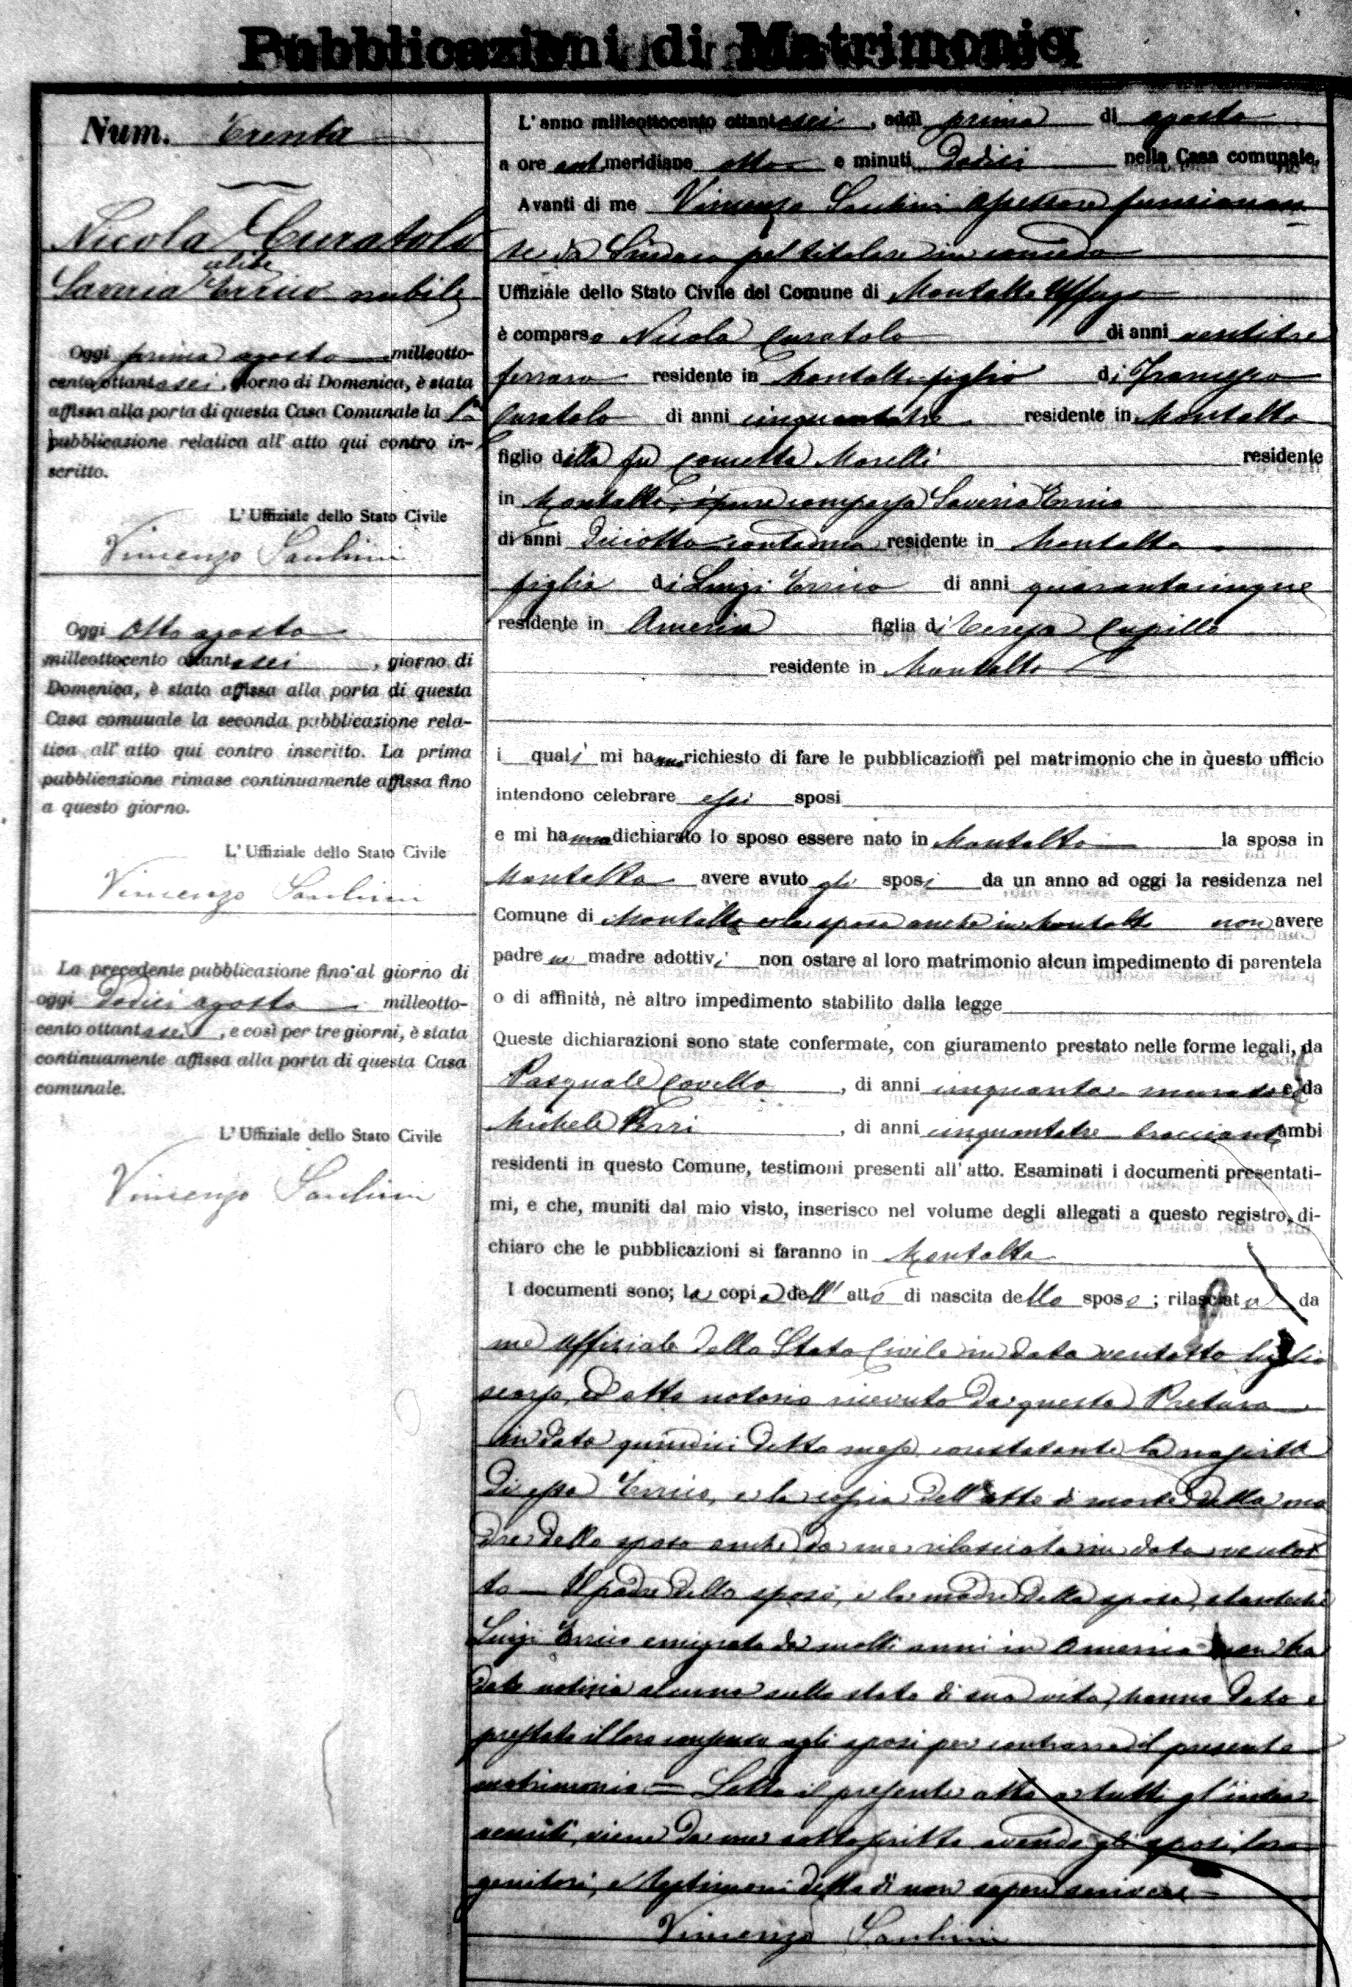 Pubblicazioni di Matrimonio
Num. Trenta
Nicola Curatolo
celibe
Saveria Errico nubile
Oggi primo agosto milleotto-
cento ottantasei, giorno di Domenica, è stata
affissa alla porta di questa Casa Comunale la 1a
pubblicazione relativa all' atto qui contro in-
scritto.
L' Uffiziale dello Stato Civile
Vincenzo
Oggi otto agosto
milleottocento ottantasei, giorno di
Domenica, è stata affissa alla porta di questa
Casa comunale la seconda pubblicazione rela-
tiva all' atto qui contro inscritto. La prima
pubblicazione rimase continuamente affissa fino
a questo giorno.
L' Uffiziale dello Stato Civile
Vincenzo
La precedente pubblicazione fino al giorno di
oggi dodici agosto milleotto-
cento ottantasei, e così per tre giorni, è stata
continuamente affissa alla porta di questa Casa
comunale.
L' Uffiziale dello Stato Civile
Vincenzo
L' anno milleottocento ottantasei, addì primo di agosto
a ore antmeridiane otto e minuti dodici nella Casa comunale.
Avanti di me Vincenzo assessore funzionan
te da Sindaco pel titolare in congedo
Uffiziale dello Stato Civile del Comune di Montalto Uffugo
è comparso Nicola Curatolo di anni ventitre
ferraro residente in Montalto figlio di Francesco
Curatolo di anni cinquantatre residente in Montalto
figlio della fu Concetta Morelli residente
in Montalto, è pure comparsa Saveria Errico
di anni diciotto contadina residente in Montalto
figlia di Luigi Errico di anni quarantacinque
residente in America figlia di Teresa Cupillo
residente in Montalto
i quali mi hanno richiesto di fare le pubblicazioni pel matrimonio che in questo ufficio
intendono celebrare essi sposi
e mi hanno dichiarato lo sposo essere nato in Montalto la sposa in
Montalto avere avuto gli sposi da un anno ad oggi la residenza nel
Comune di Montalto e la sposa anche in Montalto non avere
padre ne madre adottivi non ostare al loro matrimonio alcun impedimento di parentela
o di affinità, nè altro impedimento stabilito dalla legge
Queste dichiarazioni sono state confermate, con giuramento prestato nelle forme legali, da
Pasquale Covello, di anni cinquanta muratore e da
Michele Perri, di anni cinquantatre bracciante ambi
residenti in questo Comune, testimoni presenti all' atto. Esaminati i documenti presentati-
mi, e che, muniti dal mio visto, inserisco nel volume degli allegati a questo registro, di-
chiaro che le pubblicazioni si faranno in Montalto
I documenti sono; la copia dell' atto di nascita dello sposo; rilasciata da
me uffiziale dello Stato Civile in data ventotto luglio
scorso, ed atto notorio ricevuto da questa Pretura
in data quindici detto mese constatante la nascita
di essa Errico, e la copia dell'atto di morte della ma
dre dello sposo anche da me rilasciata in data ventot
to — Il padre dello sposo, e la madre della sposa, stanteche
Luigi Errico emigrato da molti anni in America non ha
dato notizia alcuna sullo stato di sua vita, hanno dato e
prestato il loro consenso agli sposi per contrarre il presente
matrimonio = Letto il presente atto a tutti gl'inter
venuti, viene da me sottoscritto avendo gli sposi, loro
genitori, e testimoni detto di non sapere scrivere —
Vincenzo